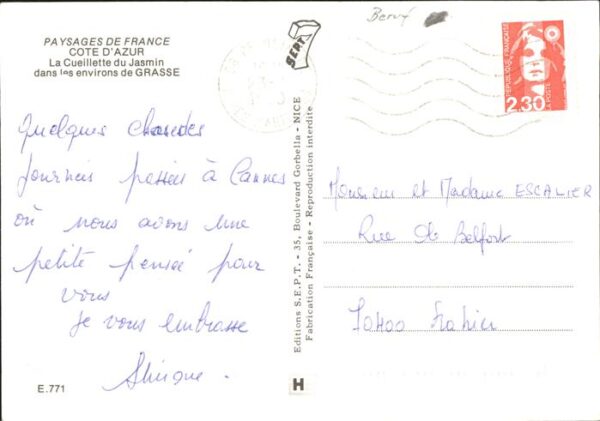 PAYSAGES DE FRANCE
COTE D'AZUR
La Cueillette du Jasmin
dans les environs de GRASSE
Quelques chaudes
journées passées à Cannes
où nous avons une
petite pensée pour
vous
Je vous embrasse
E.771
SEPT
Editions S.E.P.T. - 35, Boulevard Gorbella - NICE
Fabrication Française - Reproduction interdite.
H
REPUBLIQUE FRANÇAISE
LA POSTE
2,30
Monsieur et Madame ESCALIER
Rue de Belfort
70400 Frahier